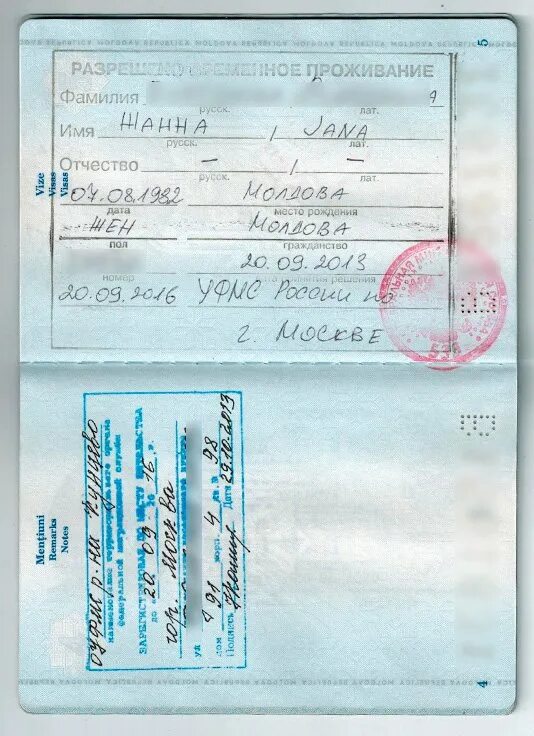 MOLDOVA REPUBLICA MOLDOVA REPUBLICA MOLDOVA REPUBLICA
5
Vize
Visas
Visas
РАЗРЕШЕНО ВРЕМЕННОЕ ПРОЖИВАНИЕ
Фамилия
русск. лат.
Имя ЖАННА / JANA
русск. лат.
Отчество – / –
русск. лат.
07.08.1982 МОЛДОВА
дата место рождения
ЖЕН МОЛДОВА
пол гражданство
20.09.2013
номер принятия решения
20.09.2016 УФМС РОССИИ по
г. МОСКВЕ
Mențiuni
Remarks
Notes
ОУФМС р-на Кунцево
наименование территориального органа
федеральной миграционной службы
ЗАРЕГИСТРИРОВАН ПО МЕСТУ ЖИТЕЛЬСТВА
до 20 09 2016 г.
гор. Москва
ул
дом 91 корп. 4 кв. 98
Подпись Дата 29.10.2013
4
MOLDOVA REPUBLICA MOLDOVA REPUBLICA MOLDOVA REPUBLICA